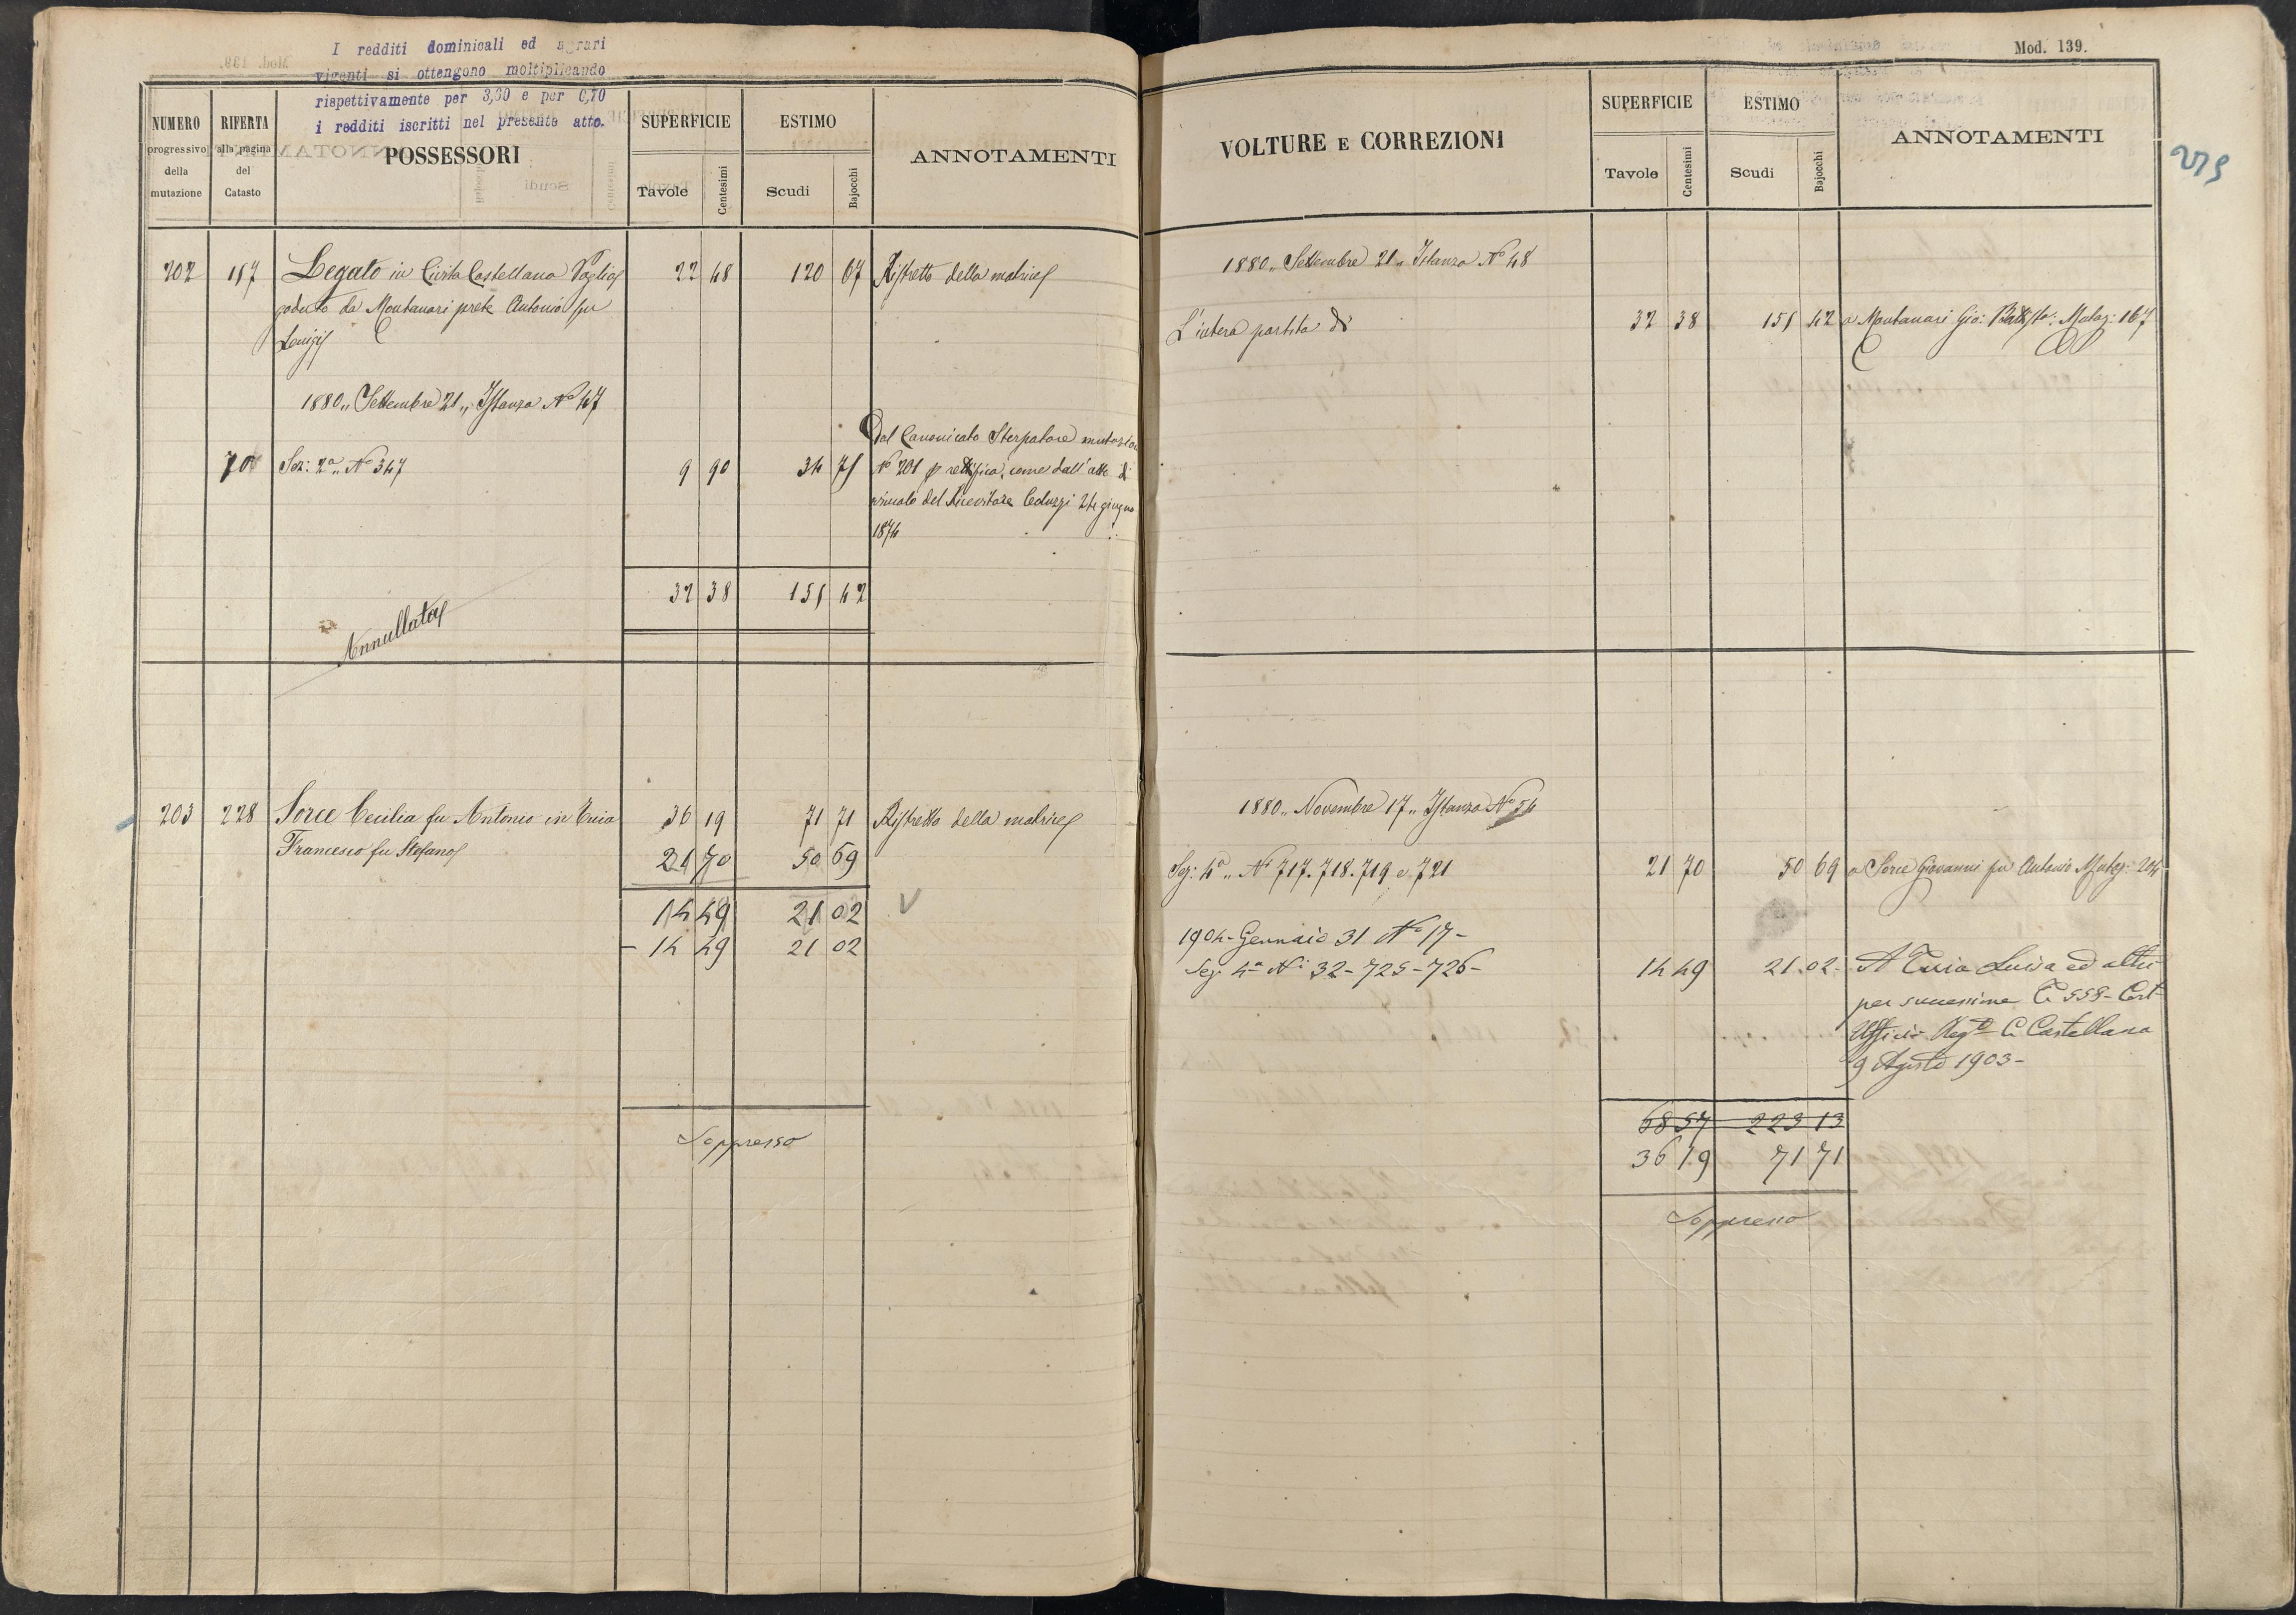 I redditi dominicali ed agrari
vigenti si ottengono moltiplicando
rispettivamente per 3,60 e per 0,70
i redditi iscritti nel presente atto.
NUMERO progressivo della mutazione
RIFERTA alla pagina del Catasto
POSSESSORI
SUPERFICIE
Tavole Centesimi
ESTIMO
Scudi Bajocchi
ANNOTAMENTI
202 117 Legato in Civita Castellana 22 48 120 67 Ristretto della matrice
goduto da Montanari prete Antonio fu
Luigi
1880 „ Settembre 21 „ Istanza Nº 47
70 Sez: 2ª „ Nº 347 9 90 34 75
Dal Canonicato Sterpatore mutazione
Nº 201 p rettifica, come dall'atto di
del Ricevitore 24 giugno
1874
32 38 151 42
Annullata
203 228 Sorce Cecilia fu Antonio in 36 19 71 71 Ristretto della matrice
Francesco fu Stefano 21 70 50 69
14 49 21 02 V
- 14 49 21 02
Soppresso
Mod. 139.
VOLTURE E CORREZIONI
SUPERFICIE
Tavole Centesimi
ESTIMO
Scudi Bajocchi
ANNOTAMENTI
279
1880 „ Settembre 21 „ Istanza Nº 48
L'intera partita di 32 38 151 42 a Montanari Gio: Battista: Mutaz: 167
1880 „ Novembre 17 „ Istanza Nº 54
Sez: 4ª „ Nº 717. 718. 719 e 721 21 70 50 69 a Sorce Giovanni fu Antonio Mutaz: 204
1904 - Gennaio 31 Nº 17 -
Sez 4ª Nⁱ 32 - 725 - 726 - 14 49 21.02 - A Luisa ed altri
per successione C 558 - Cert
Ufficio Regº C. Castellana
9 Agosto 1903 -
68 57 223 13
36 19 71 71
Soppresso